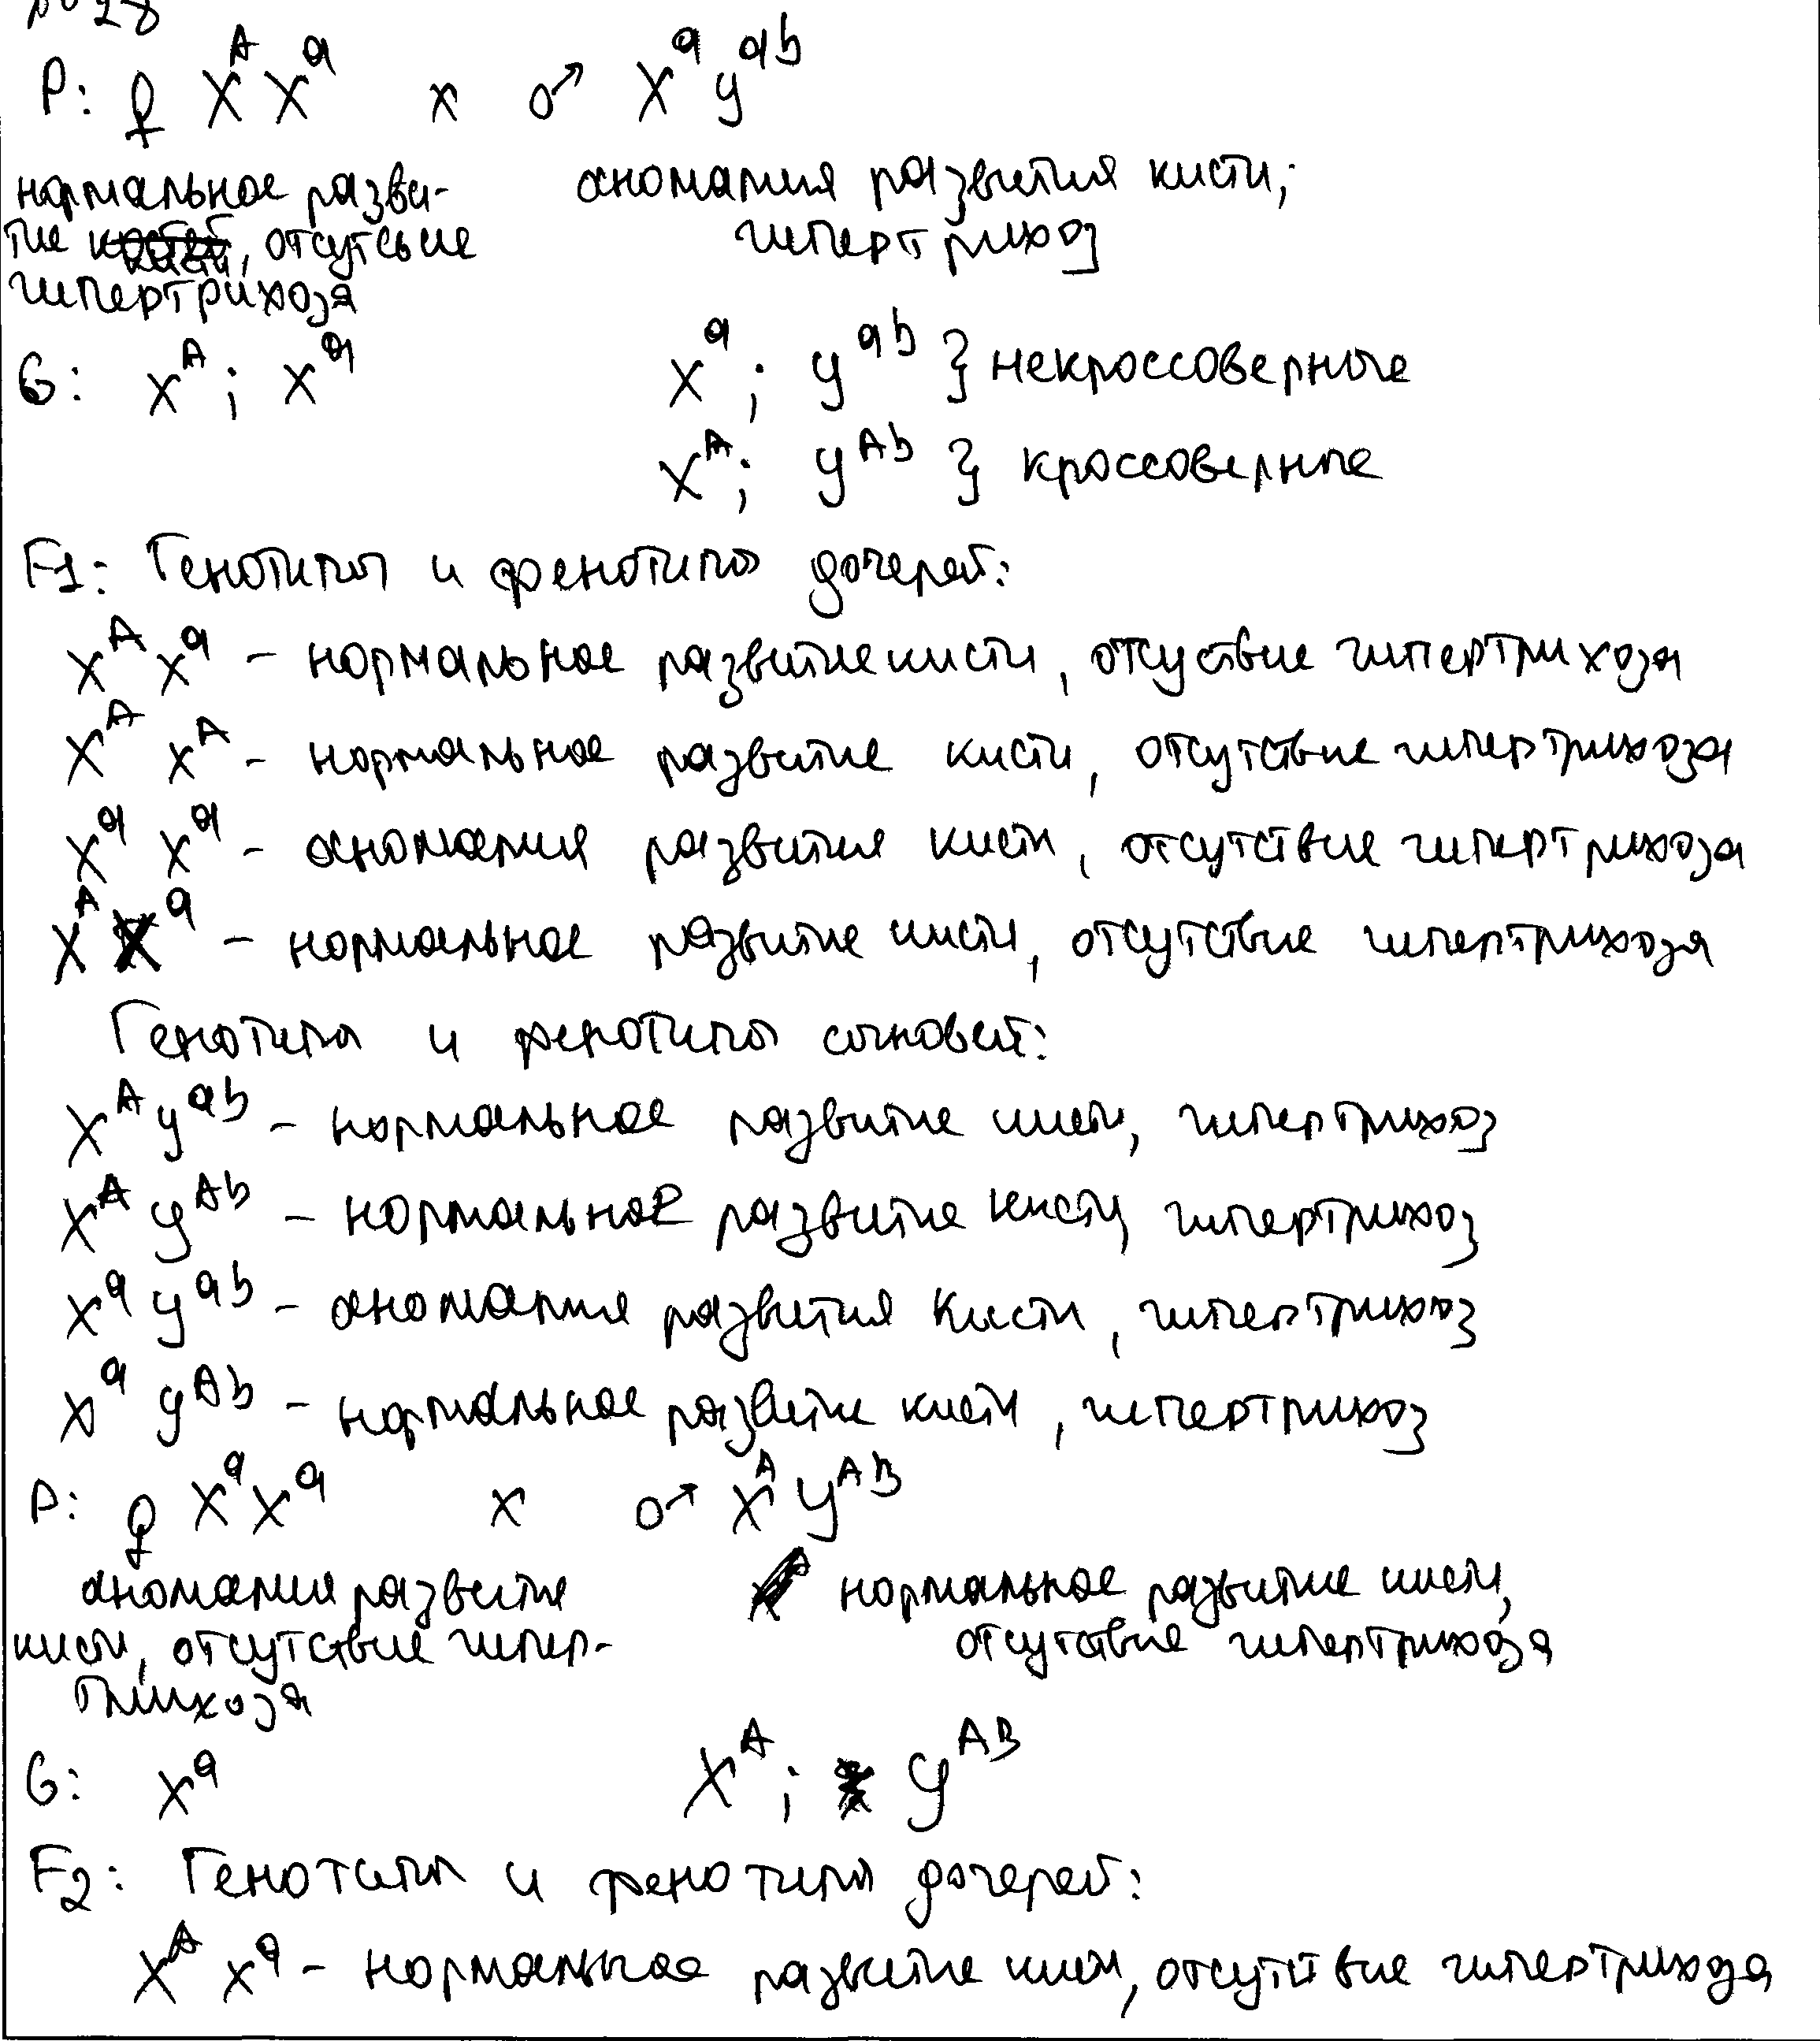 № 28
P: ♀ XᴬXᵃ x ♂ XᵃYᵃᵇ
нормальное разви- аномалия развития кисти;
тие кисти, отсутсвие гипертрихоз
гипертрихоза
G: Xᴬ; Xᵃ Xᵃ; Yᵃᵇ } некроссоверные
Xᴬ; Yᴬᵇ } кроссоверные
F1: Генотипы и фенотипы дочерей:
XᴬXᵃ – нормальное развитие кисти, отсуствие гипертрихоза
XᴬXᴬ – нормальное развитие кисти, отсутствие гипертрихоза
XᵃXᵃ – аномалия развития кисти, отсутствие гипертрихоза
XᴬXᵃ – нормальное развитие кисти, отсутствие гипертрихоза
Генотипы и фенотипы сыновей:
XᴬYᵃᵇ – нормальное развитие кисти, гипертрихоз
XᴬYᴬᵇ – нормальное развитие кисти, гипертрихоз
XᵃYᵃᵇ – аномалия развития кисти, гипертрихоз
XᵃYᴬᵇ – нормальное развитие кисти, гипертрихоз
P: ♀ XᵃXᵃ x ♂ XᴬYᴬᴮ
аномалия развитя нормальное развитие кисти,
кисти, отсутствие гипер- отсутствие гипертрихоза
трихоза
G: Xᵃ Xᴬ; Yᴬᴮ
F2: Генотипы и фенотипы дочерей:
XᴬXᵃ – нормальное развитие кисти, отсутствие гипертрихоза